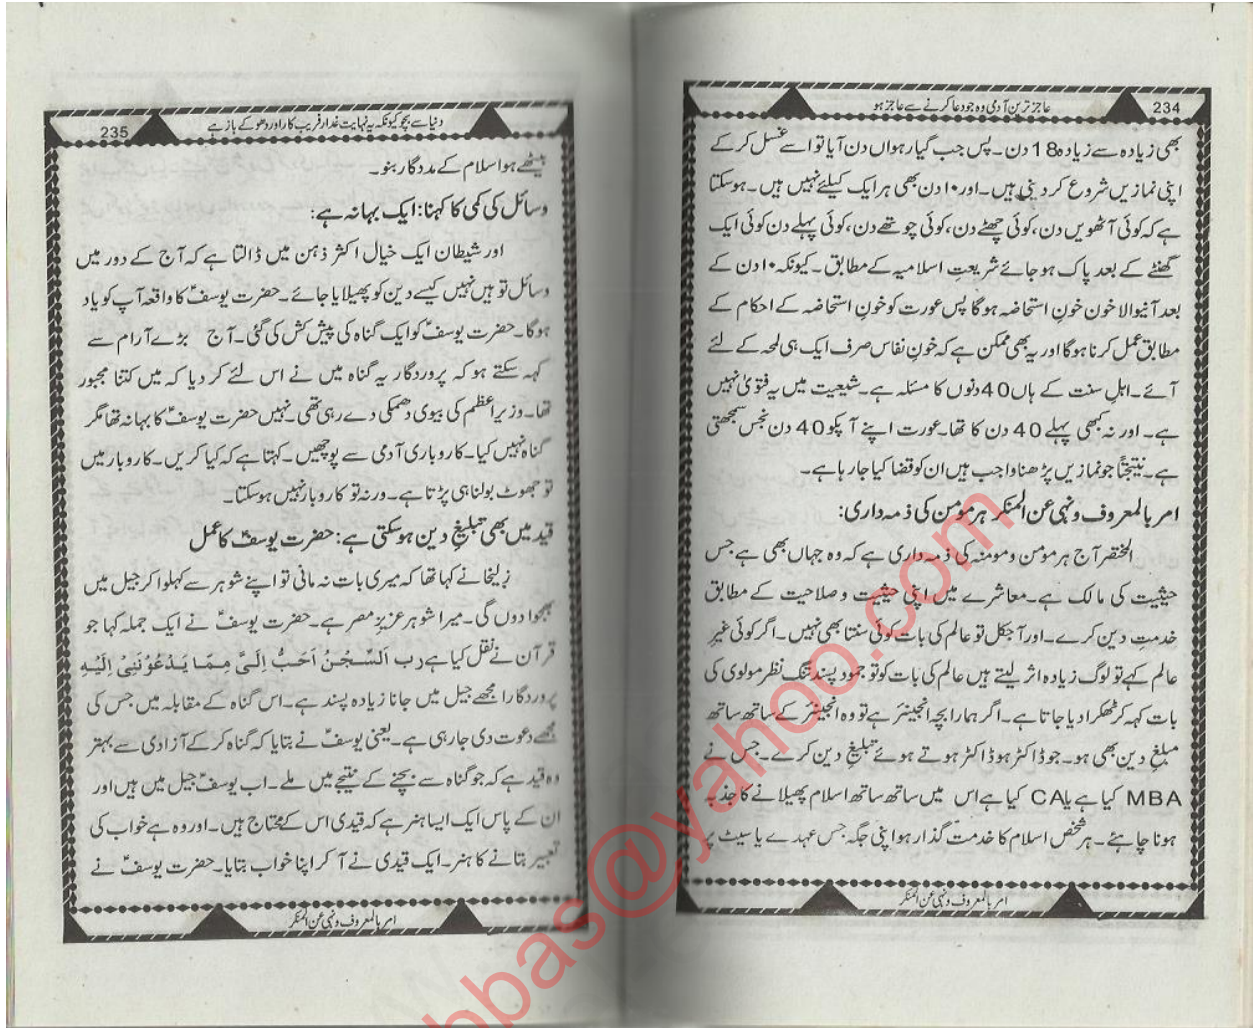 234
عاجز ترین آدمی وہ جو دعا کرنے سے عاجز ہو
بھی زیادہ سے زیادہ 18 دن۔ پس جب گیارہواں دن آیا تو اسے غسل کر کے
اپنی نمازیں شروع کر دینی ہیں۔ اور ۱۰ دن بھی ہر ایک کیلئے نہیں ہیں۔ ہو سکتا
ہے کہ کوئی آٹھویں دن، کوئی چھٹے دن، کوئی چوتھے دن، کوئی پہلے دن کوئی ایک
گھنٹے کے بعد پاک ہو جائے شریعتِ اسلامیہ کے مطابق۔ کیونکہ ۱۰ دن کے
بعد آنیوالا خون خونِ استحاضہ ہوگا پس عورت کو خونِ استحاضہ کے احکام کے
مطابق عمل کرنا ہوگا اور یہ بھی ممکن ہے کہ خونِ نفاس صرف ایک ہی لمحہ کے لئے
آئے۔ اہلِ سنت کے ہاں 40 دنوں کا مسئلہ ہے۔ شیعیت میں یہ فتویٰ نہیں
ہے۔ اور نہ کبھی پہلے 40 دن کا تھا۔ عورت اپنے آپکو 40 دن نجس سمجھتی
ہے۔ نتیجتاً جو نمازیں پڑھنا واجب ہیں ان کو قضا کیا جا رہا ہے۔
امر بالمعروف و نہی عن المنکر ہر مومن کی ذمہ داری:
المختصر آج ہر مومن و مومنہ کی ذمہ داری ہے کہ وہ جہاں بھی ہے جس
حیثیت کی مالک ہے۔ معاشرے میں اپنی حیثیت و صلاحیت کے مطابق
خدمتِ دین کرے۔ اور آجکل تو عالم کی بات کوئی سنتا بھی نہیں۔ اگر کوئی غیرِ
عالم کہے تو لوگ زیادہ اثر لیتے ہیں عالم کی بات کو تو جمود پسند تنگ نظر مولوی کی
بات کہہ کر ٹھکرا دیا جاتا ہے۔ اگر ہمارا بچہ انجینئر ہے تو وہ انجینئر کے ساتھ ساتھ
مبلغِ دین بھی ہو۔ جو ڈاکٹر ہو ڈاکٹر ہوتے ہوئے تبلیغِ دین کرے۔ جس نے
MBA کیا ہے یا CA کیا ہے اس میں ساتھ ساتھ اسلام پھیلانے کا جذبہ
ہونا چاہئے۔ ہر شخص اسلام کا خدمت گذار ہو اپنی جگہ جس عہدے یا سیٹ پر
امر بالمعروف و نہی عن المنکر
235
دنیا سے بچو کیونکہ یہ نہایت غدار فریب کار اور دھوکے باز ہے
بیٹھے ہو اسلام کے مددگار بنو۔
وسائل کی کمی کا کہنا: ایک بہانہ ہے:
اور شیطان ایک خیال اکثر ذہن میں ڈالتا ہے کہ آج کے دور میں
وسائل تو ہیں نہیں کیسے دین کو پھیلایا جائے۔ حضرت یوسفؑ کا واقعہ آپ کو یاد
ہوگا۔ حضرت یوسفؑ کو ایک گناہ کی پیش کش کی گئی۔ آج بڑے آرام سے
کہہ سکتے ہو کہ پروردگار یہ گناہ میں نے اس لئے کر دیا کہ میں کتنا مجبور
تھا۔ وزیرِ اعظم کی بیوی دھمکی دے رہی تھی۔ نہیں حضرت یوسفؑ کا بہانہ تھا مگر
گناہ نہیں کیا۔ کاروباری آدمی سے پوچھیں۔ کہتا ہے کہ کیا کریں۔ کاروبار میں
تو جھوٹ بولنا ہی پڑتا ہے۔ ورنہ تو کاروبار نہیں ہو سکتا۔
قید میں بھی تبلیغِ دین ہو سکتی ہے: حضرت یوسفؑ کا عمل
زلیخا نے کہا تھا کہ میری بات نہ مانی تو اپنے شوہر سے کہلوا کر جیل میں
بھجوا دوں گی۔ میرا شوہر عزیزِ مصر ہے۔ حضرت یوسفؑ نے ایک جملہ کہا جو
قرآن نے نقل کیا ہے رب اَلسِّجْنُ اَحَبُّ اِلَیَّ مِمَّا یَدْعُوْنَنِیْ اِلَیْہِ
پروردگارا مجھے جیل میں جانا زیادہ پسند ہے۔ اس گناہ کے مقابلہ میں جس کی
مجھے دعوت دی جا رہی ہے۔ یعنی یوسفؑ نے بتایا کہ گناہ کر کے آزادی سے بہتر
وہ قید ہے کہ جو گناہ سے بچنے کے نتیجے میں ملے۔ اب یوسفؑ جیل مین ہیں اور
ان کے پاس ایک ایسا ہنر ہے کہ قیدی اس کے محتاج ہیں۔ اور وہ ہے خواب کی
تعبیر بتانے کا ہنر۔ ایک قیدی نے آ کر اپنا خواب بتایا۔ حضرت یوسفؑ نے
امر بالمعروف و نہی عن المنکر
bbas@yahoo.com